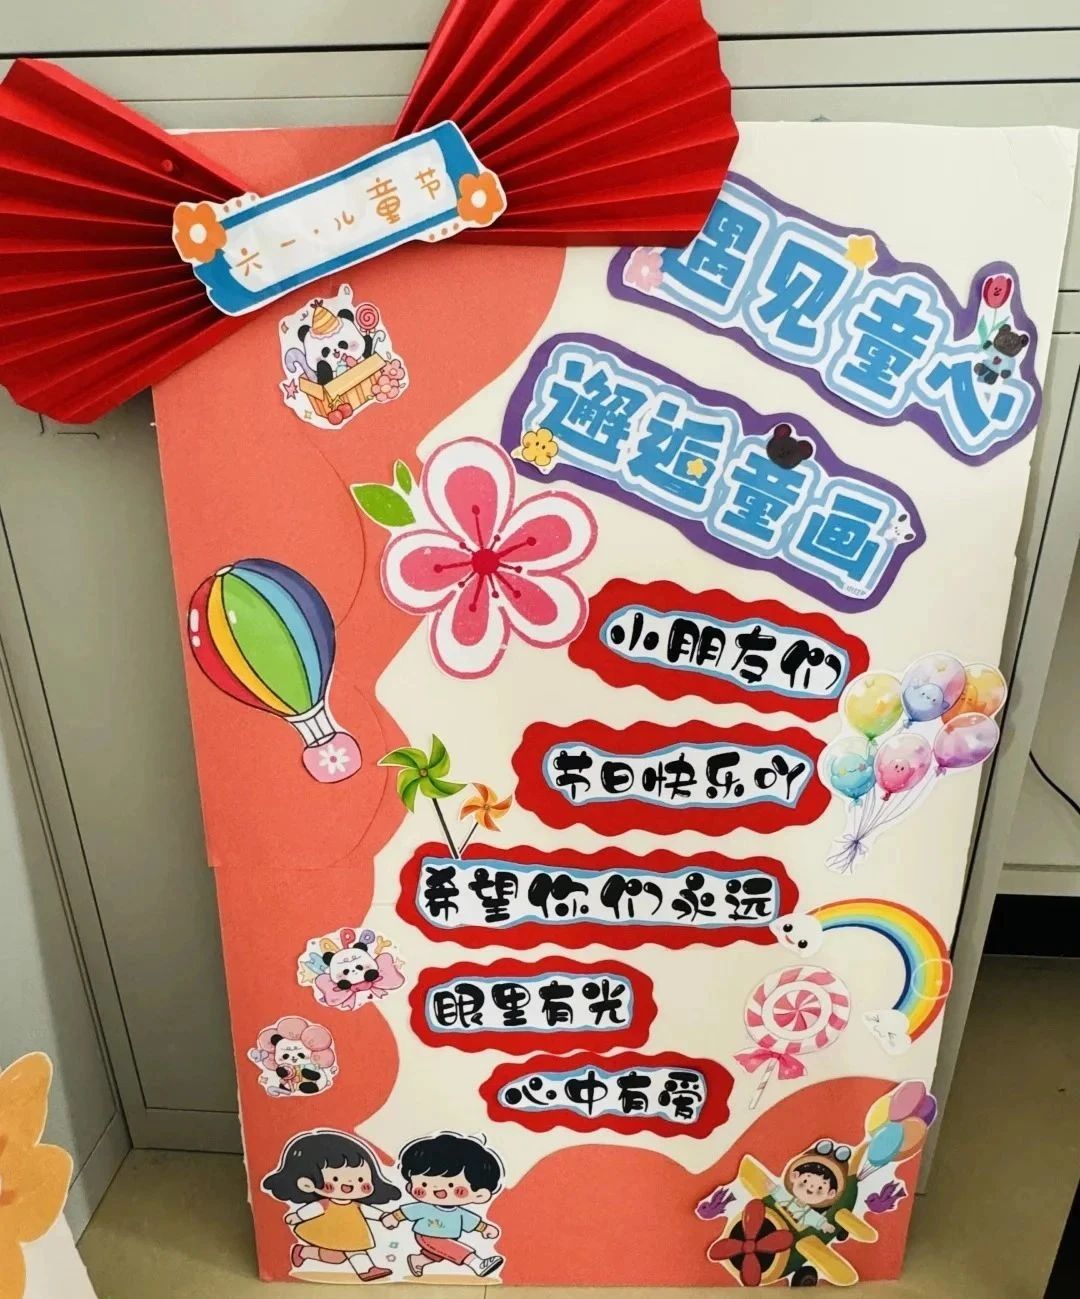 六一·儿童节
遇见童心
邂逅童画
小朋友们
节日快乐吖
希望你们永远
眼里有光
心中有爱
HAPPY